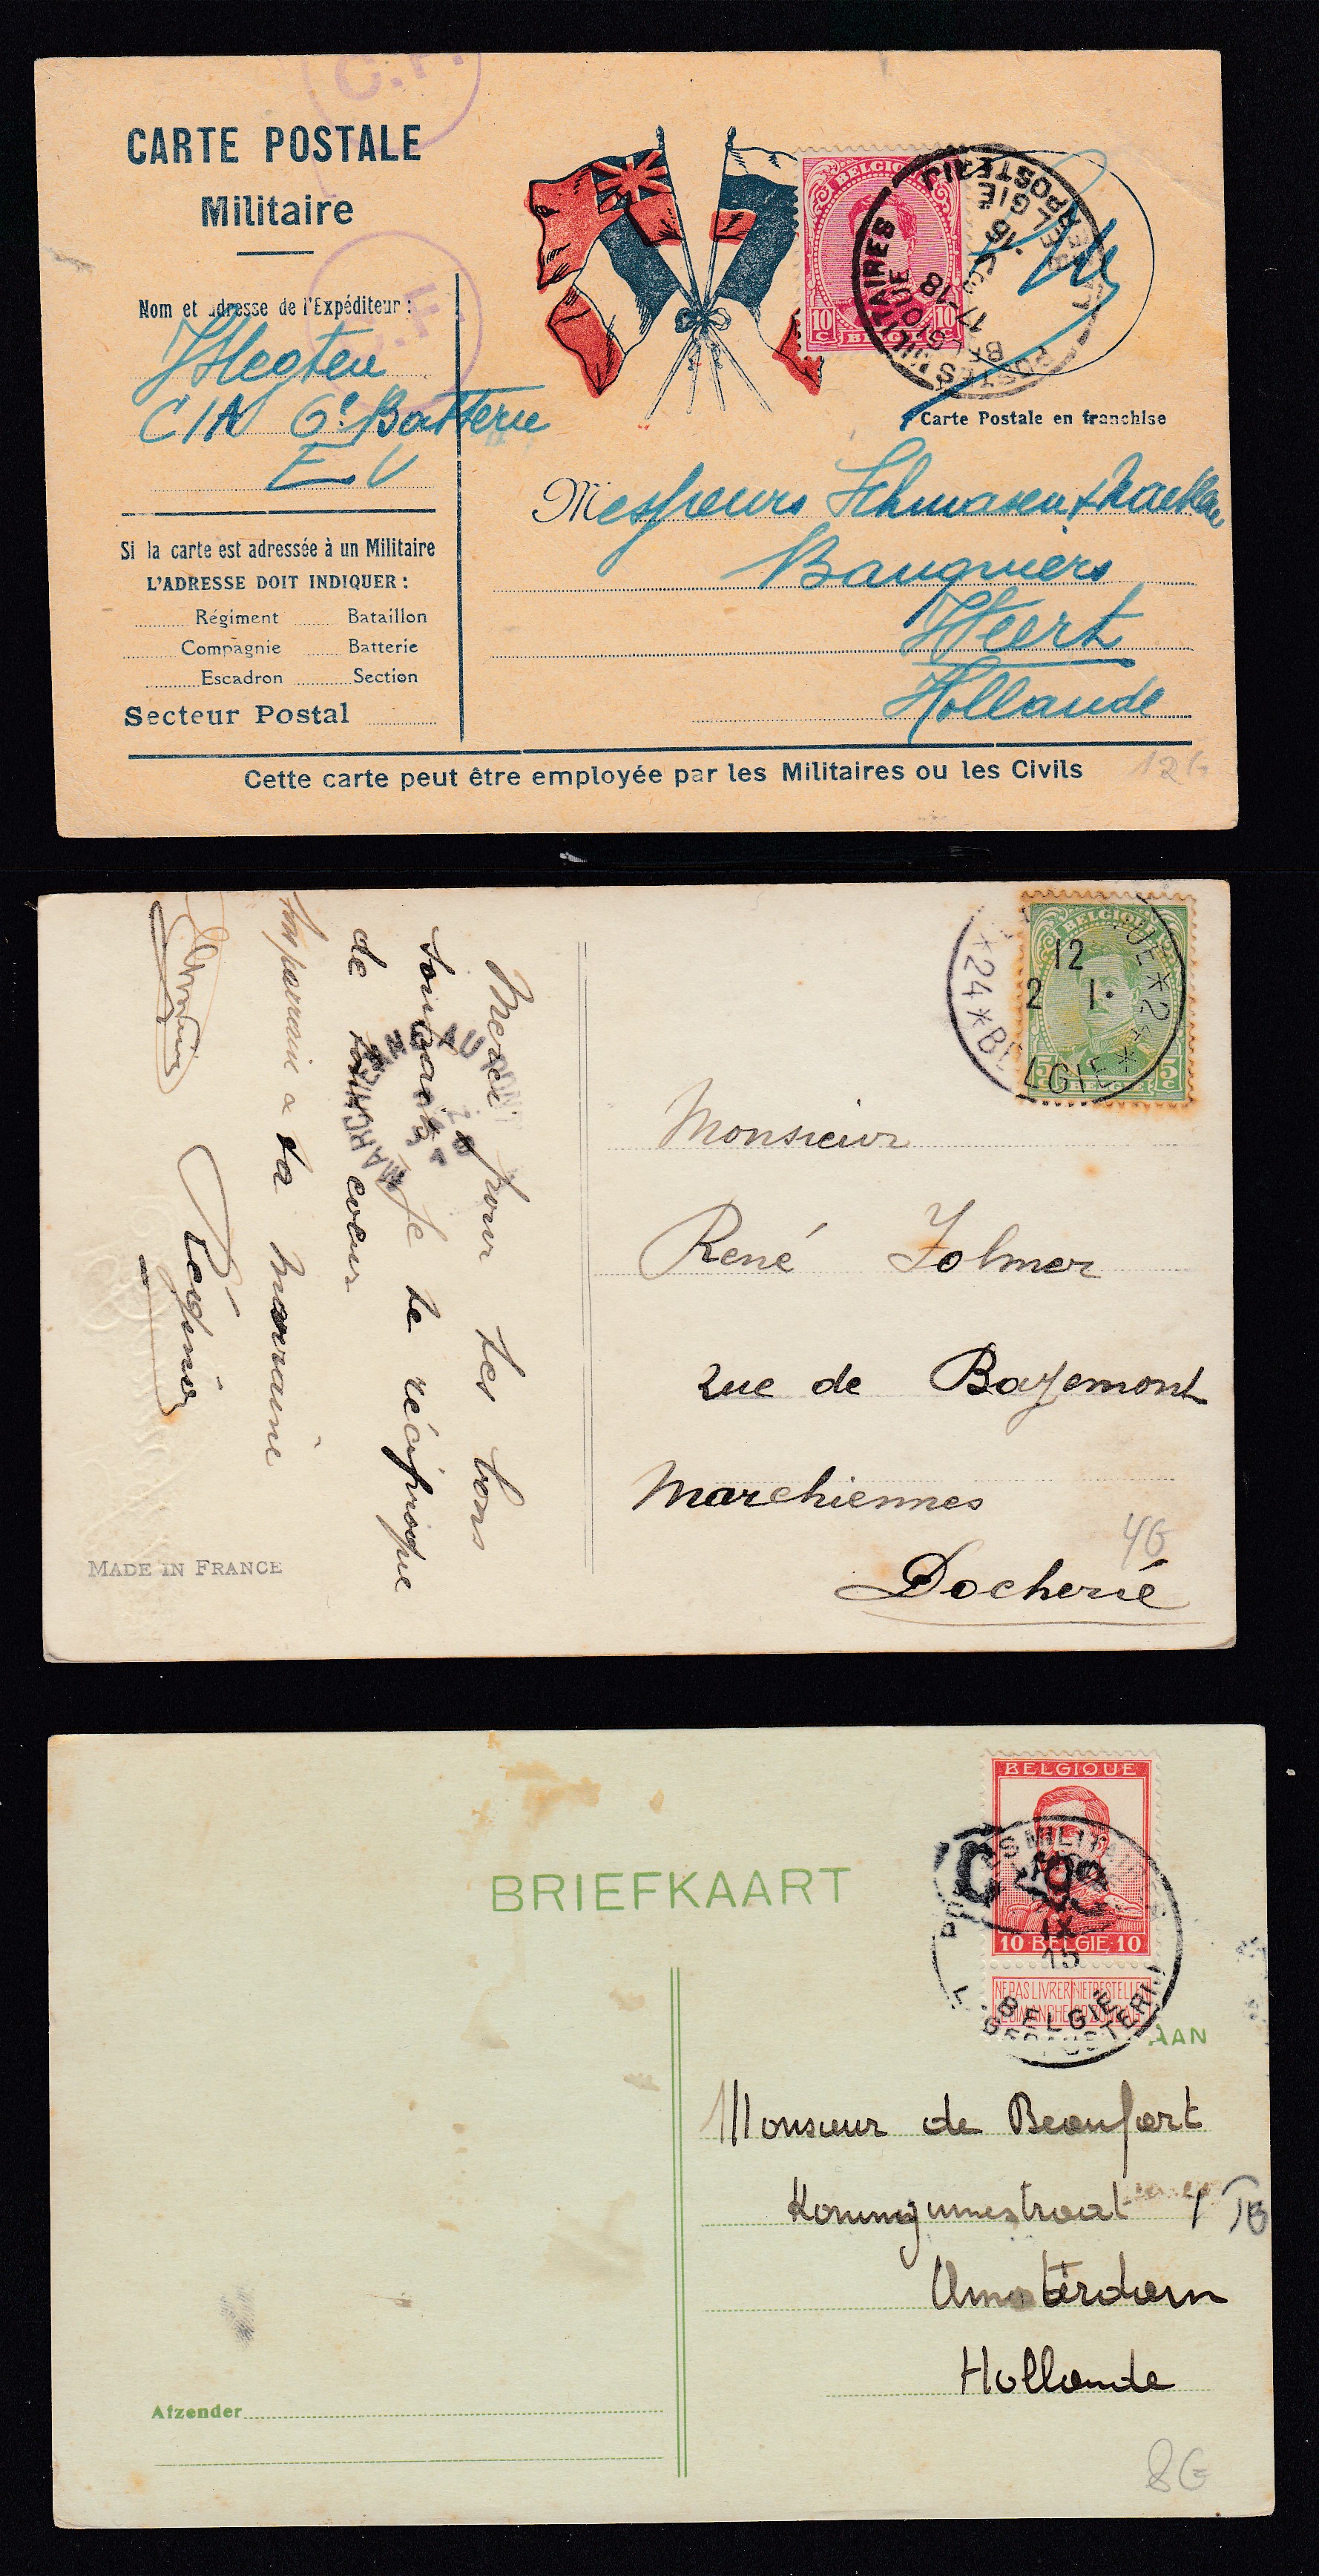 C.F.
CARTE POSTALE
Militaire
Nom et adresse de l'Expéditeur :
JHegten
CIA 6e Batterie
E V
Si la carte est adressée à un Militaire
L'ADRESSE DOIT INDIQUER :
Régiment Bataillon
Compagnie Batterie
Escadron Section
Secteur Postal
BELGIQUE
10 C 10 C
BELGIË
POSTES MILITAIRES
BELGIQUE
17-18
16
BELGIË
LEGERPOSTERIJ
Carte Postale en franchise
Messieurs
Banquiers
Weert
Hollande
Cette carte peut être employée par les Militaires ou les Civils
12G
Merci pour tes bons
souhaits Je te réciproque
de tout coeur
ta marraine
MARCHIENNE AU PONT
MADE IN FRANCE
BELGIQUE
5 C 5 C
BELGIE
12
2 I
*24*BELGIE*
Monsieur
René Folmer
rue de Bayemont
Marchiennes
Docherie
4G
BRIEFKAART
BELGIQUE
10 BELGIE 10
NE PAS LIVRER NIET BESTELLEN
LE DIMANCHE OP ZONDAG
POSTES MILITAIRES
IX
15
BELGIE
LEGERPOSTERIJ
AAN
Monsieur de Beaufort
Amsterdam
Hollande
Afzender
8G